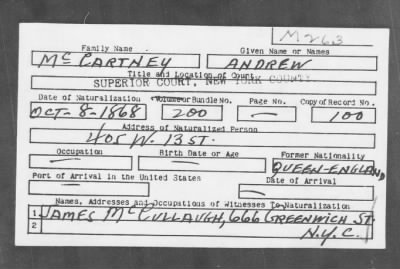 M263
Family Name Given Name or Names
McCARTNEY ANDREW
Title and Location of Court
SUPERIOR COURT, NEW YORK COUNTY
Date of Naturalization Volume or Bundle No. Page No. Copy of Record No.
OCT-8-1868 200 — 100
Address of Naturalized Person
405 W. 13 ST.
Occupation Birth Date or Age Former Nationality
— — QUEEN-ENGLAND
Port of Arrival in the United States Date of Arrival
— —
Names, Addresses and Occupations of Witnesses To Naturalization
1 JAMES McCULLAUGH, 666 GREENWICH ST.
2 N.Y.C.